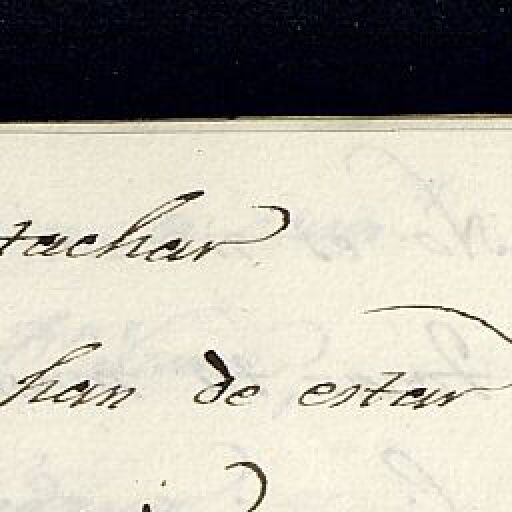 tachar
han de estar